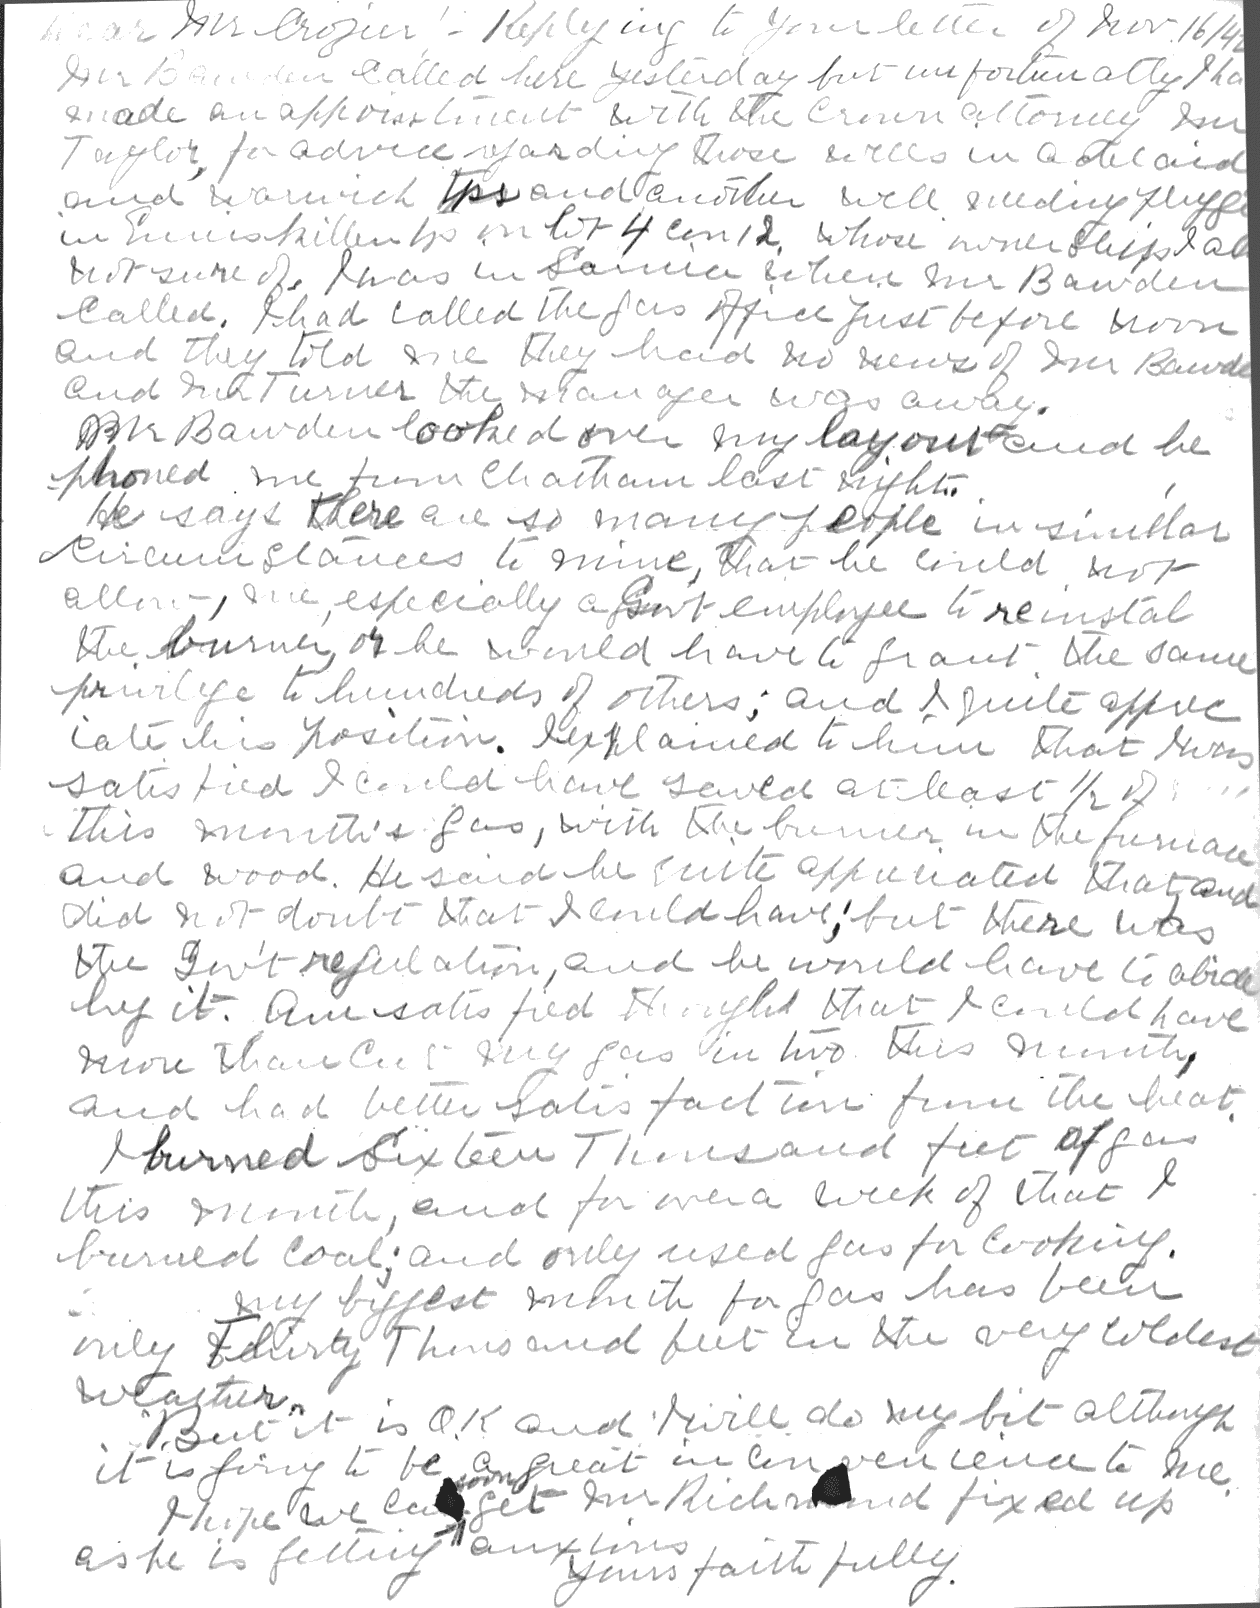 Dear Mr Crozier! - Replying to your letter of Nov. 16/42
Mr Bawden called here yesterday but unfortunatly I ha
made an appointment with the Crown Attorney Mr
Taylor, for advice regarding those wells in Adelaid
and Warwick Tps and another well needing plugg
in Enniskillen tp on lot 4 con 12, whose ownership I a
not sure of. I was in Sarnia when Mr Bawden
called. I had called the gas office just before noon
and they told me they had no news of Mr Bawde
and Mr Turner the manager was away.
Mr Bawden looked over my layout and he
phoned me from Chatham last night.
He says there are so many people in similar
circumstances to mine, that he could not
allow, me, especially a Govt employee to reinstal
the burner, or he would have to grant the same
privilege to hundreds of others; and I quite apprec
iate his position. I explained to him that I was
satisfied I could have saved at least 1/2 of
this month's gas, with the burner in the furnace
and wood. He said he quite appreciated that, and
did not doubt that I could have; but there was
the Gov't regulation, and he would have to abide
by it. Am satisfied though that I could have
more than cut my gas in two this month,
and had better satisfaction from the heat.
I burned Sixteen Thousand feet of gas
this month, and for over a week of that I
burned coal; and only used gas for cooking.
my biggest month for gas has been
only Thirty Thousand feet in the very coldest
weather.
But it is O.K and I will do my bit although
it is going to be a great inconvenience to me.
I hope we can soon get Mr Richmond fixed up
as he is getting anxious
Yours faithfully.